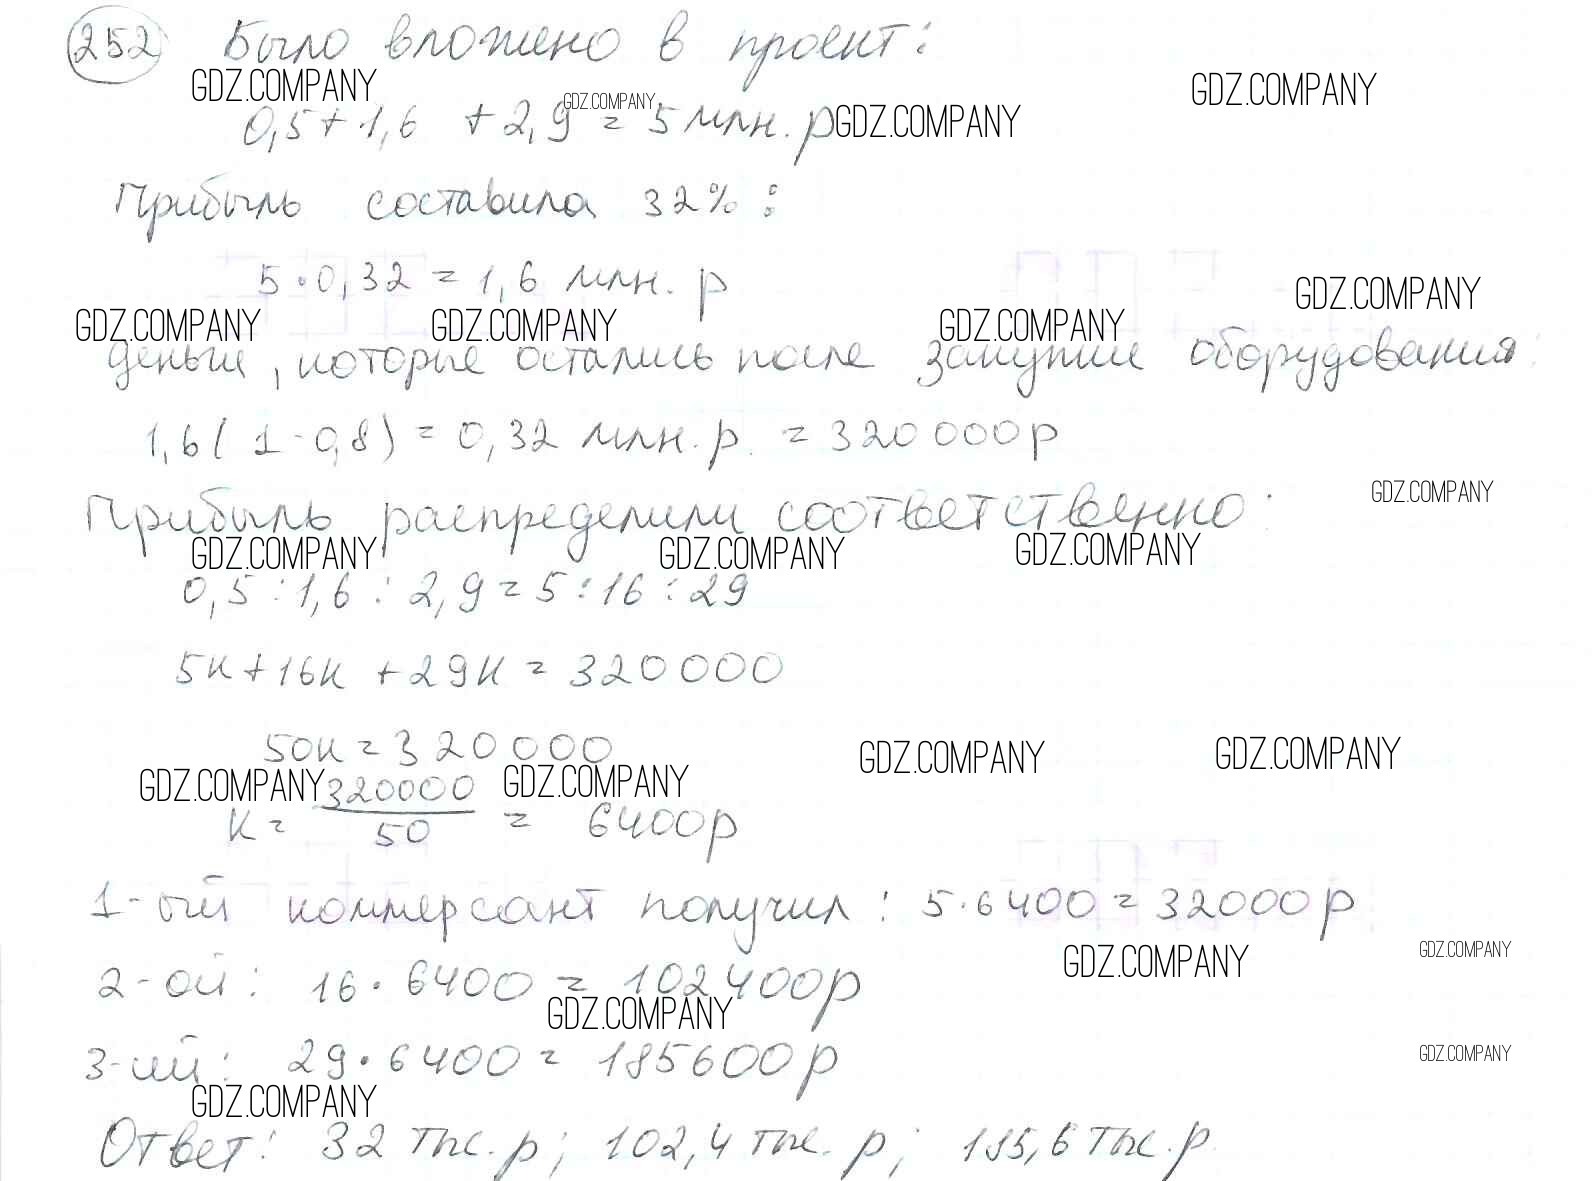 252 Было вложено в проект:
GDZ.COMPANY GDZ.COMPANY GDZ.COMPANY
0,5 + 1,6 + 2,9 = 5 млн. р GDZ.COMPANY
Прибыль составила 32% :
5 · 0,32 = 1,6 млн. р
GDZ.COMPANY
GDZ.COMPANY GDZ.COMPANY GDZ.COMPANY
деньги, которые остались после закупки оборудования:
1,6 ( 1 - 0,8 ) = 0,32 млн. р. = 320 000 р
GDZ.COMPANY
Прибыль распределили соответственно:
GDZ.COMPANY GDZ.COMPANY GDZ.COMPANY
0,5 : 1,6 : 2,9 = 5 : 16 : 29
5к + 16к + 29к = 320 000
50к = 320 000
GDZ.COMPANY GDZ.COMPANY GDZ.COMPANY GDZ.COMPANY
к = 320000 / 50 = 6400 р
1-ый коммерсант получил : 5 · 6400 = 32000 р
GDZ.COMPANY GDZ.COMPANY
2-ой : 16 · 6400 = 102 400 р
GDZ.COMPANY
3-ий : 29 · 6400 = 185600 р
GDZ.COMPANY
GDZ.COMPANY
Ответ : 32 тыс. р ; 102,4 тыс. р ; 185,6 тыс. р